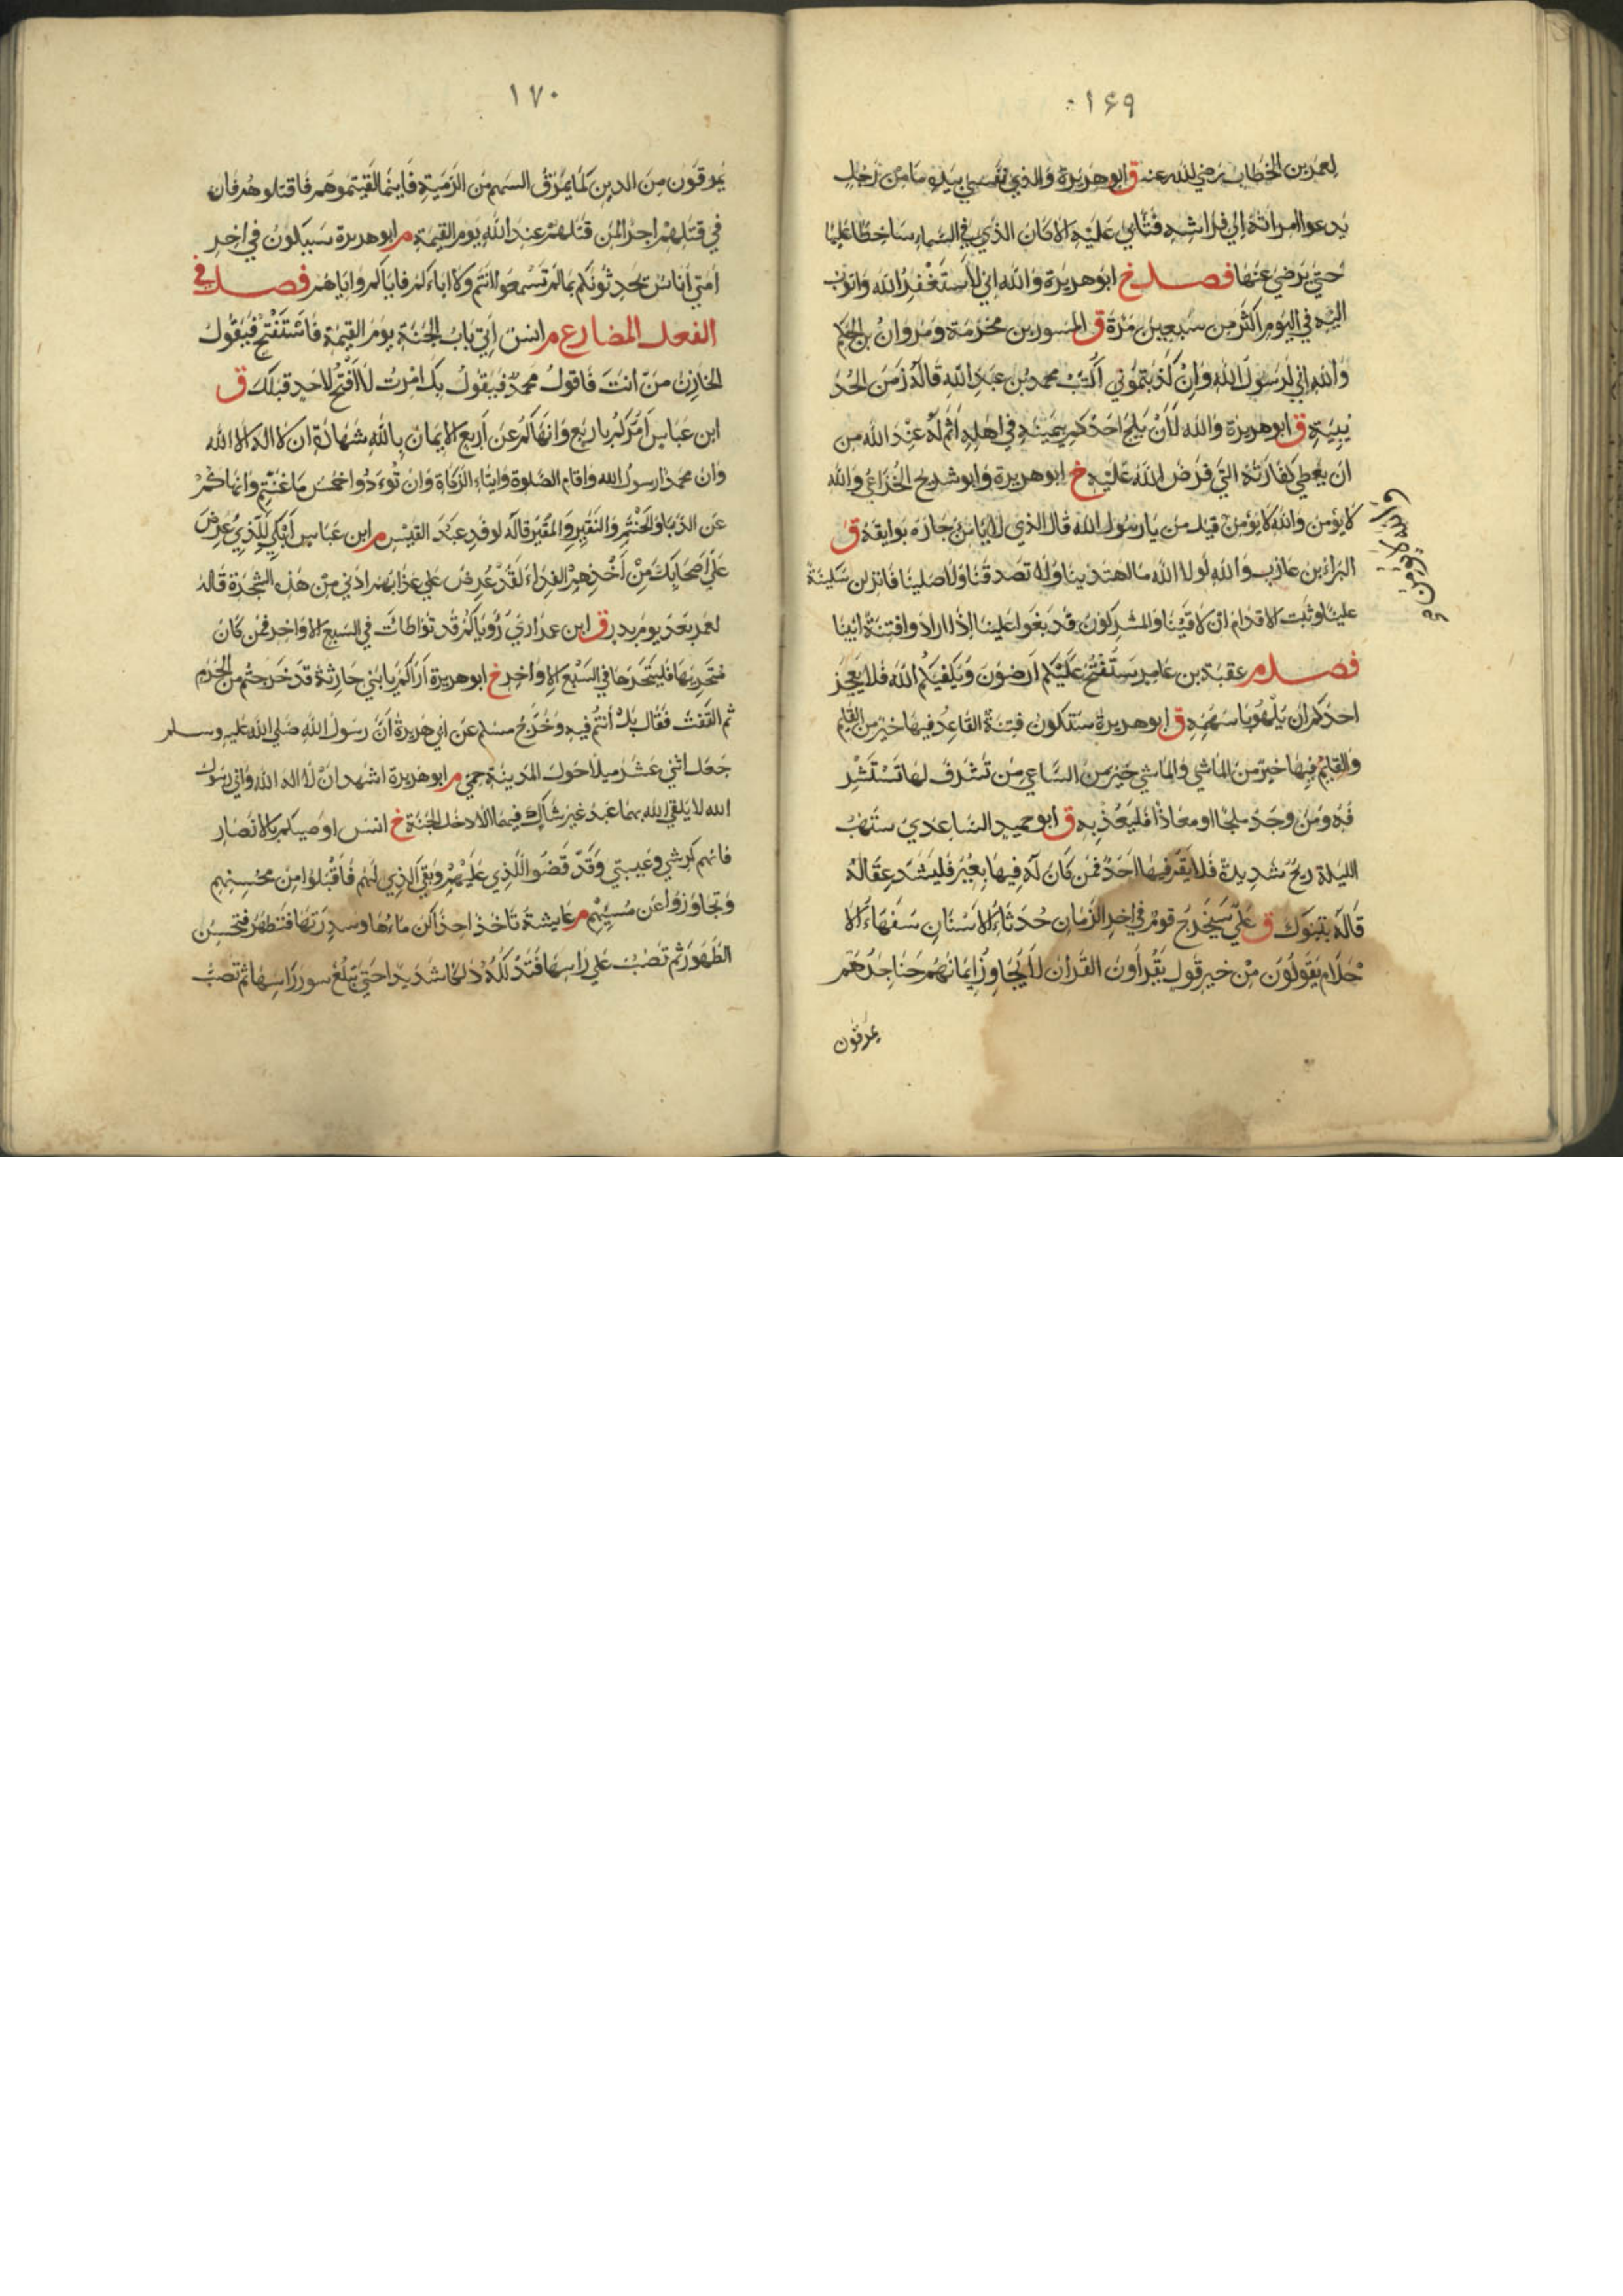 ۱۶۹
لعمر بن الخطاب رضي الله عنه ق ابو هريرة والذي نفسي بيده ما من رجل
يدعوا امراته الي فراشه فتابي عليه الا كان الذي في السماء ساخطا عليها
حتي يرضي عنها فصل خ ابو هريرة والله اني لاستغفر الله واتوب
اليه في اليوم اكثر من سبعين مرة ق المسور بن مخرمة ومروان بن الحكم
والله اني لرسول الله وان كذبتموني اكتب محمد بن عبد الله قاله زمن الحد
يبية ق ابو هريرة والله لان يلج احدكم بيمينه في اهله اثم له عند الله من
ان يعطي كفارته التي فرض الله عليه خ ابو هريرة وابو شريح الخزاعي والله
لا يؤمن والله لا يؤمن قيل من يا رسول الله قال الذي لا يامن جاره بوايقه ق
والله لا يؤمن
البراء بن عازب والله لولا الله ما اهتدينا ولا تصدقنا ولا صلينا فانزلن سكينة
علينا وثبت الاقدام ان لاقينا والمشركون قد بغوا علينا اذا ارادوا فتنة ابينا
فصل م عقبة بن عامر ستفتح عليكم ارضون ويكفيكم الله فلا يعجز
احدكم ان يلهو باسهمه ق ابو هريرة ستكون فتنة القاعد فيها خير من القايم
والقايم فيها خير من الماشي والماشي خير من الساعي من تشرف لها تستشر
فه ومن وجد ملجا او معاذا فليعذ به ق ابو حميد الساعدي ستهب
الليلة ريح شديدة فلا يقم فيها احد فمن كان له فيها بعير فليشد عقاله
قاله بتبوك ق علي سيخرج قوم في اخر الزمان حدثاء الاسنان سفهاء الا
حلام يقولون من خير قول يقرأون القران لا يجاوز ايمانهم حناجرهم
يمرقون
۱۷۰
يمرقون من الدين كما يمرق السهم من الرمية فاينما لقيتموهم فاقتلوهم فان
في قتلهم اجرا لمن قتلهم عند الله يوم القيمة م ابو هريرة سيكون في اخر
امتي اناس يحدثونكم بما لم تسمعوا انتم ولا اباءكم فاياكم واياهم فصل في
الفعل المضارع م انس اتي باب الجنة يوم القيمة فاستفتح فيقول
الخازن من انت فاقول محمد فيقول بك امرت لا افتح لاحد قبلك ق
ابن عباس امركم باربع وانهاكم عن اربع الايمان بالله شهادة ان لا اله الا الله
وان محمدا رسول الله واقام الصلوة وايتاء الزكاة وان تؤدوا خمس ما غنتم وانهاكم
عن الدباء والحنتم والنقير والمقير قاله لوفد عبد القيس م ابن عباس ابكي للذي عرض
علي اصحابك من اخذهم الفداء لقد عرض علي عذابهم ادني من هذه الشجرة قاله
لعمر بعد يوم بدر ق ابن عمر اري رؤياكم قد تواطات في السبع الاواخر فمن كان
متحريها فليتحرها في السبع الاواخر خ ابو هريرة اراكم يا بني حارثة قد خرجتم من الحرم
ثم التفت فقال بل انتم فيه وخرج مسلم عن ابي هريرة ان رسول الله صلي الله عليه وسلم
جعل اثني عشر ميلا حول المدينة حمي م ابو هريرة اشهد ان لا اله الا الله واني رسول
الله لا يلقي الله بهما عبد غير شاك فيهما الا دخل الجنة خ انس اوصيكم بالانصار
فانهم كرشي وعيبتي وقد قضوا الذي عليهم وبقي الذي لهم فاقبلوا من محسنهم
وتجاوزوا عن مسيئهم م عايشة تاخذ احداكن ماءها وسدرتها فتطهر فتحسن
الطهور ثم تصب علي راسها فتدلكه دلكا شديدا حتي تبلغ سور راسها ثم تصب